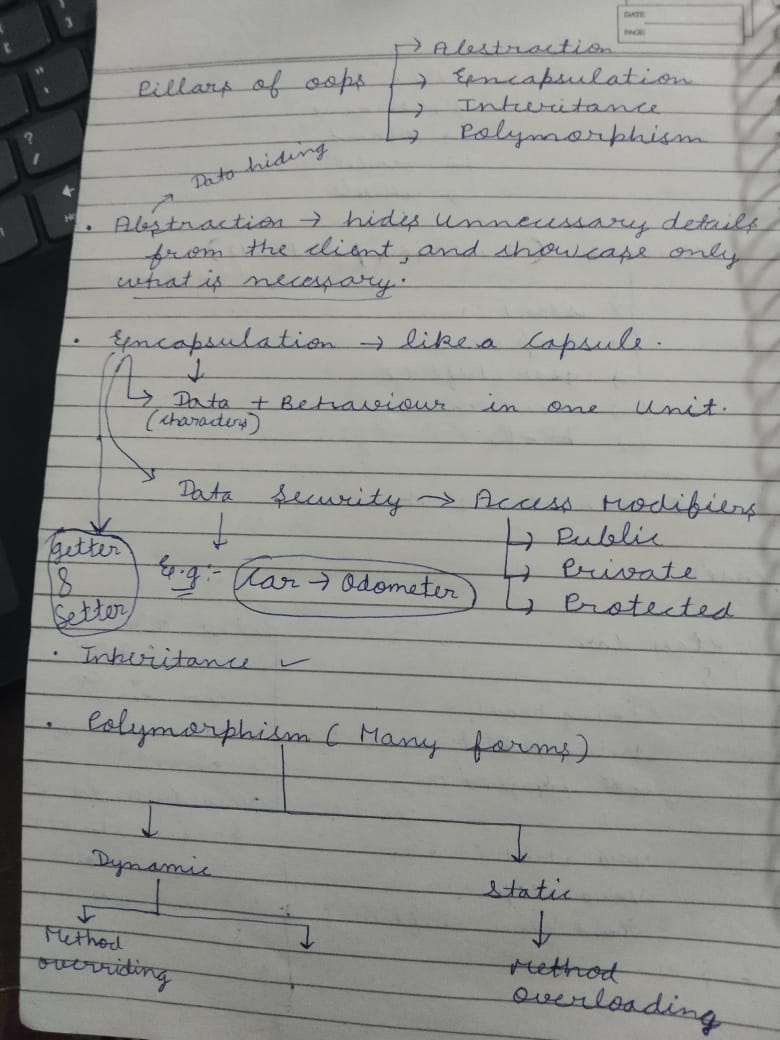 DATE
PAGE
Pillars of oops
→ Abstraction
→ Encapsulation
→ Inheritance
→ Polymorphism
Data hiding
• Abstraction → hides unnecessary details
from the client, and showcase only
what is necessary.
• Encapsulation → like a Capsule.
→ Data + Behaviour in one Unit.
(characters)
Data Security → Access Modifiers
→ Public
→ Private
→ Protected
getter
&
Setter
E.g:- Car → Odometer
• Inheritance ✓
• Polymorphism (Many forms)
Dynamic
Static
Method
overriding
Method
overloading